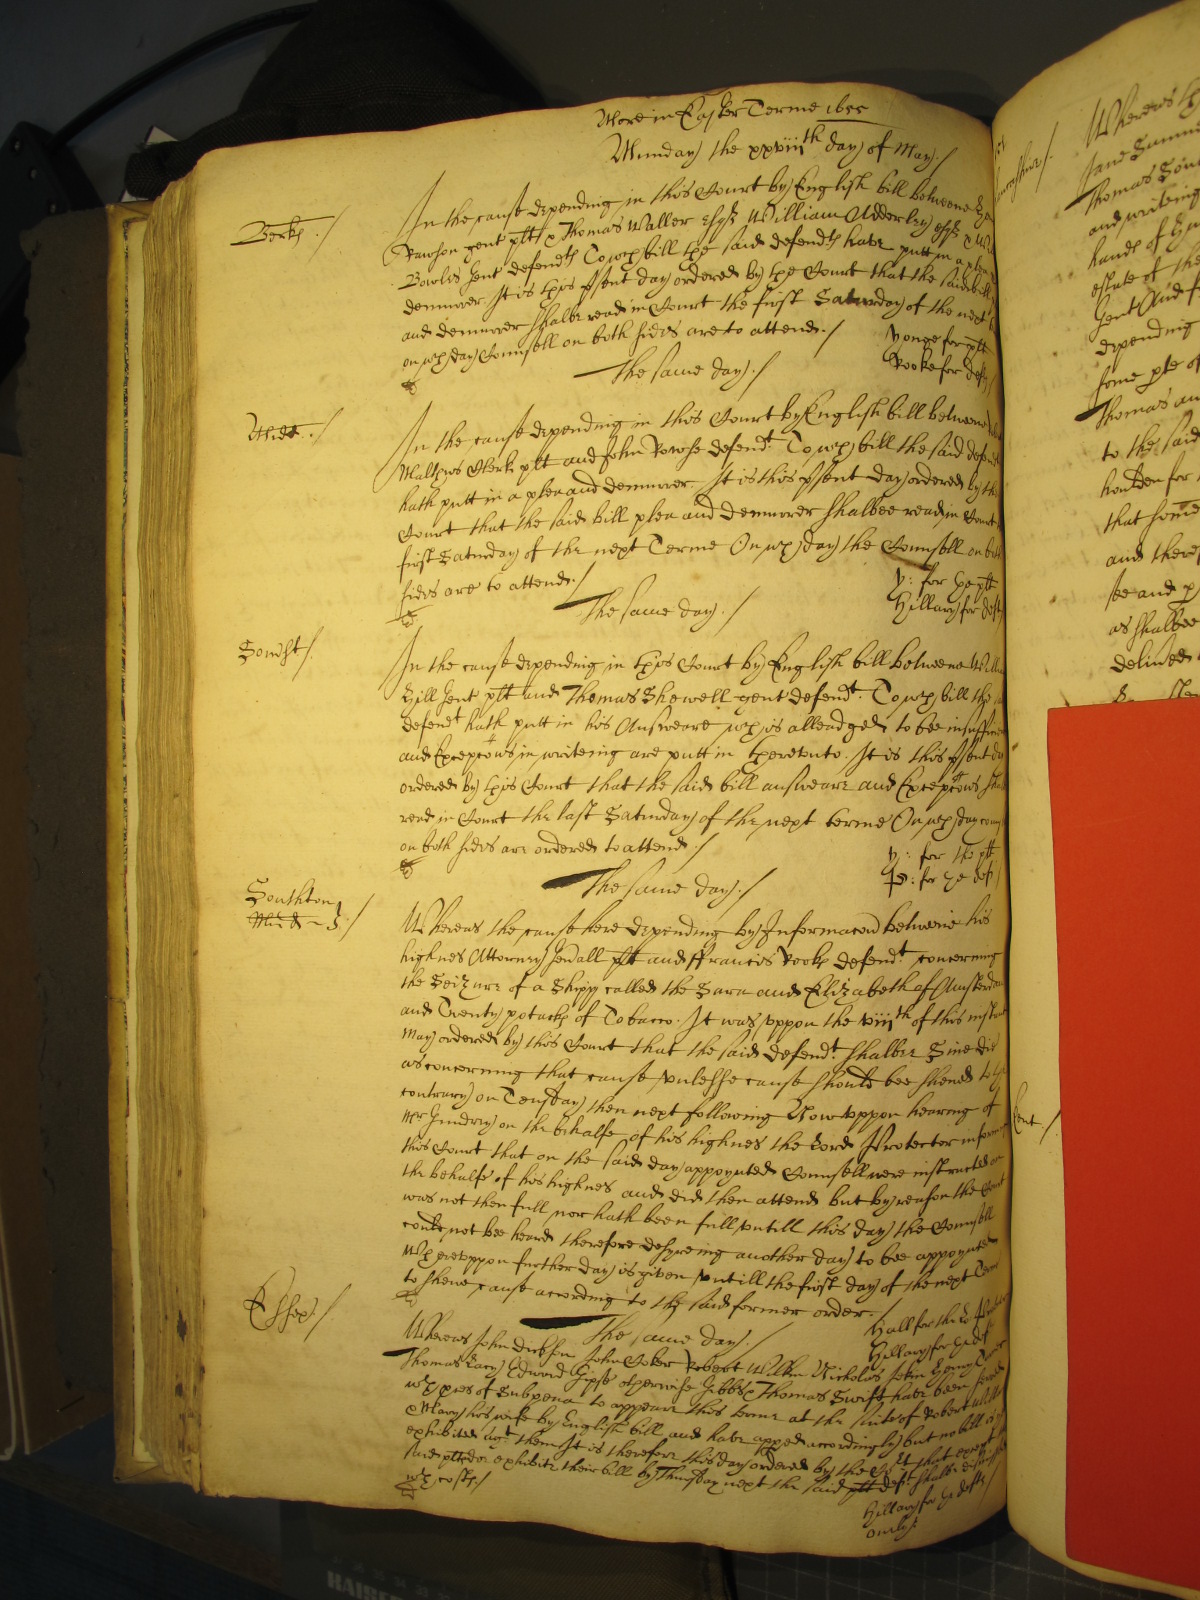 More in Easter Terme 1655
Munday the xxviiith day of May./
Berks ./
In the cause depending in this Court by English bill betweene
Rawson gent plt & Thomas Waller esqr William Adderley esqr &
Bowles gent defendts To wch bill the said defendts have putt in a plea
demurrer It is this psent day ordered by the Court that the said bill
and demurrer shalbe read in Court the first Saturday of the next
on wch day Counsell on both sides are to attend ./
Yonge for plt
Rooke for defts
The same day ./
Midd ./
In the cause depending in this Court by English bill betweene
Mathews Clerk plt and John Rowse defendt To wch bill the said defendt
hath putt in a plea and demurrer. It is this psent day ordered by the
Court that the said bill plea and demurrer shalbee read in Court
first Saturday of the next Terme On wch day the Counsell on both
sides are to attend ./
y: for ye plt
Hillary for deft
The same day ./
South/.
In the cause depending in this Court by English bill betweene
Hill gent plt and Thomas Shewell gent defendt. To wch bill the
defendt hath putt in his Answeare wch is alleadged to bee insufficient
and Excepcõns in writeing are putt in thereunto. It is this psent day
ordered by this Court that the said bill answeare and Excepcõns
read in Court the last Saturday of the next terme On wch day
on both sides are ordered to attend ./
y: for the plt
P: for ye deft
The same day ./
Southton
Midd ./
Whereas the cause here depending by Informacõn betweene his
highnes Attorney Gen'all plt and ffrancis Rooke defendt. concerning
the Seizure of a Shipp called the Sara and Elizabeth of Amsterdam
and Twenty potacks of Tobacco. It was uppon the viiith of this instant
May ordered by this Court that the said defendt. shalbe Sine die
as concerning that cause unlesse cause should bee shewed to the
contrary on Teusday then next following Now uppon hearing of
Mr Gundrey on the behalfe of his highnes the Lord Protector
this Court that on the said day appoynted Counsell were instructed on
the behalfe of his highnes and did then attend but by reason the Court
was not then full nor hath been full untill this day the Counsell
could not bee heard therefore desyreing another day to bee appoynted
Whereuppon further day is given untill the first day of the next Terme
to shewe cause according to the said former order ./
Hall for the
Hillary for ye deft
The same day ./
Essex ./
Whereas John Dickson John Coker Robert Wilkin Nicholas John
Thomas Lacy Edward Gipps otherwise Gibbs & Thomas Swift have been served
wth pces of Subpena to appeare this terme at the suite of Robert
& Mary his wife by English bill and have apped accordingly but no bill is
exhibited agt them It is therefore this day ordered by the Cort that except the
said plts doe exhibite their bill by Thursday next the said plt deft shalbe dismissed
wth costs ./
Hillary for ye defts
only
Kent ./
Whereas
Jane
Thomas
and writing
hands of
estate of the
gent And
depending
some pte of
Thomas an
to the said
houlden for
that some
and there
be and p
as shalbee
delivered